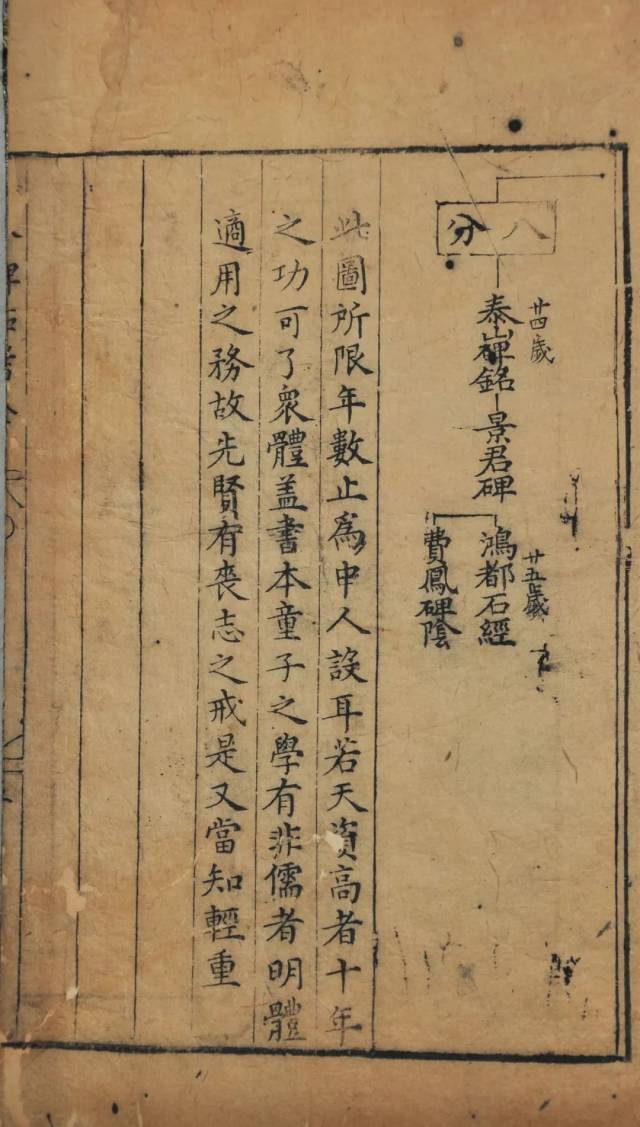 八分
廿四歲
泰山禪銘
景君碑
廿五歲
鴻都石經
費鳳碑陰
此圖所限年數止爲中人設耳若天資高者十年
之功可了衆體盖書本童子之學有非儒者明體
適用之務故先賢有喪志之戒是又當知輕重